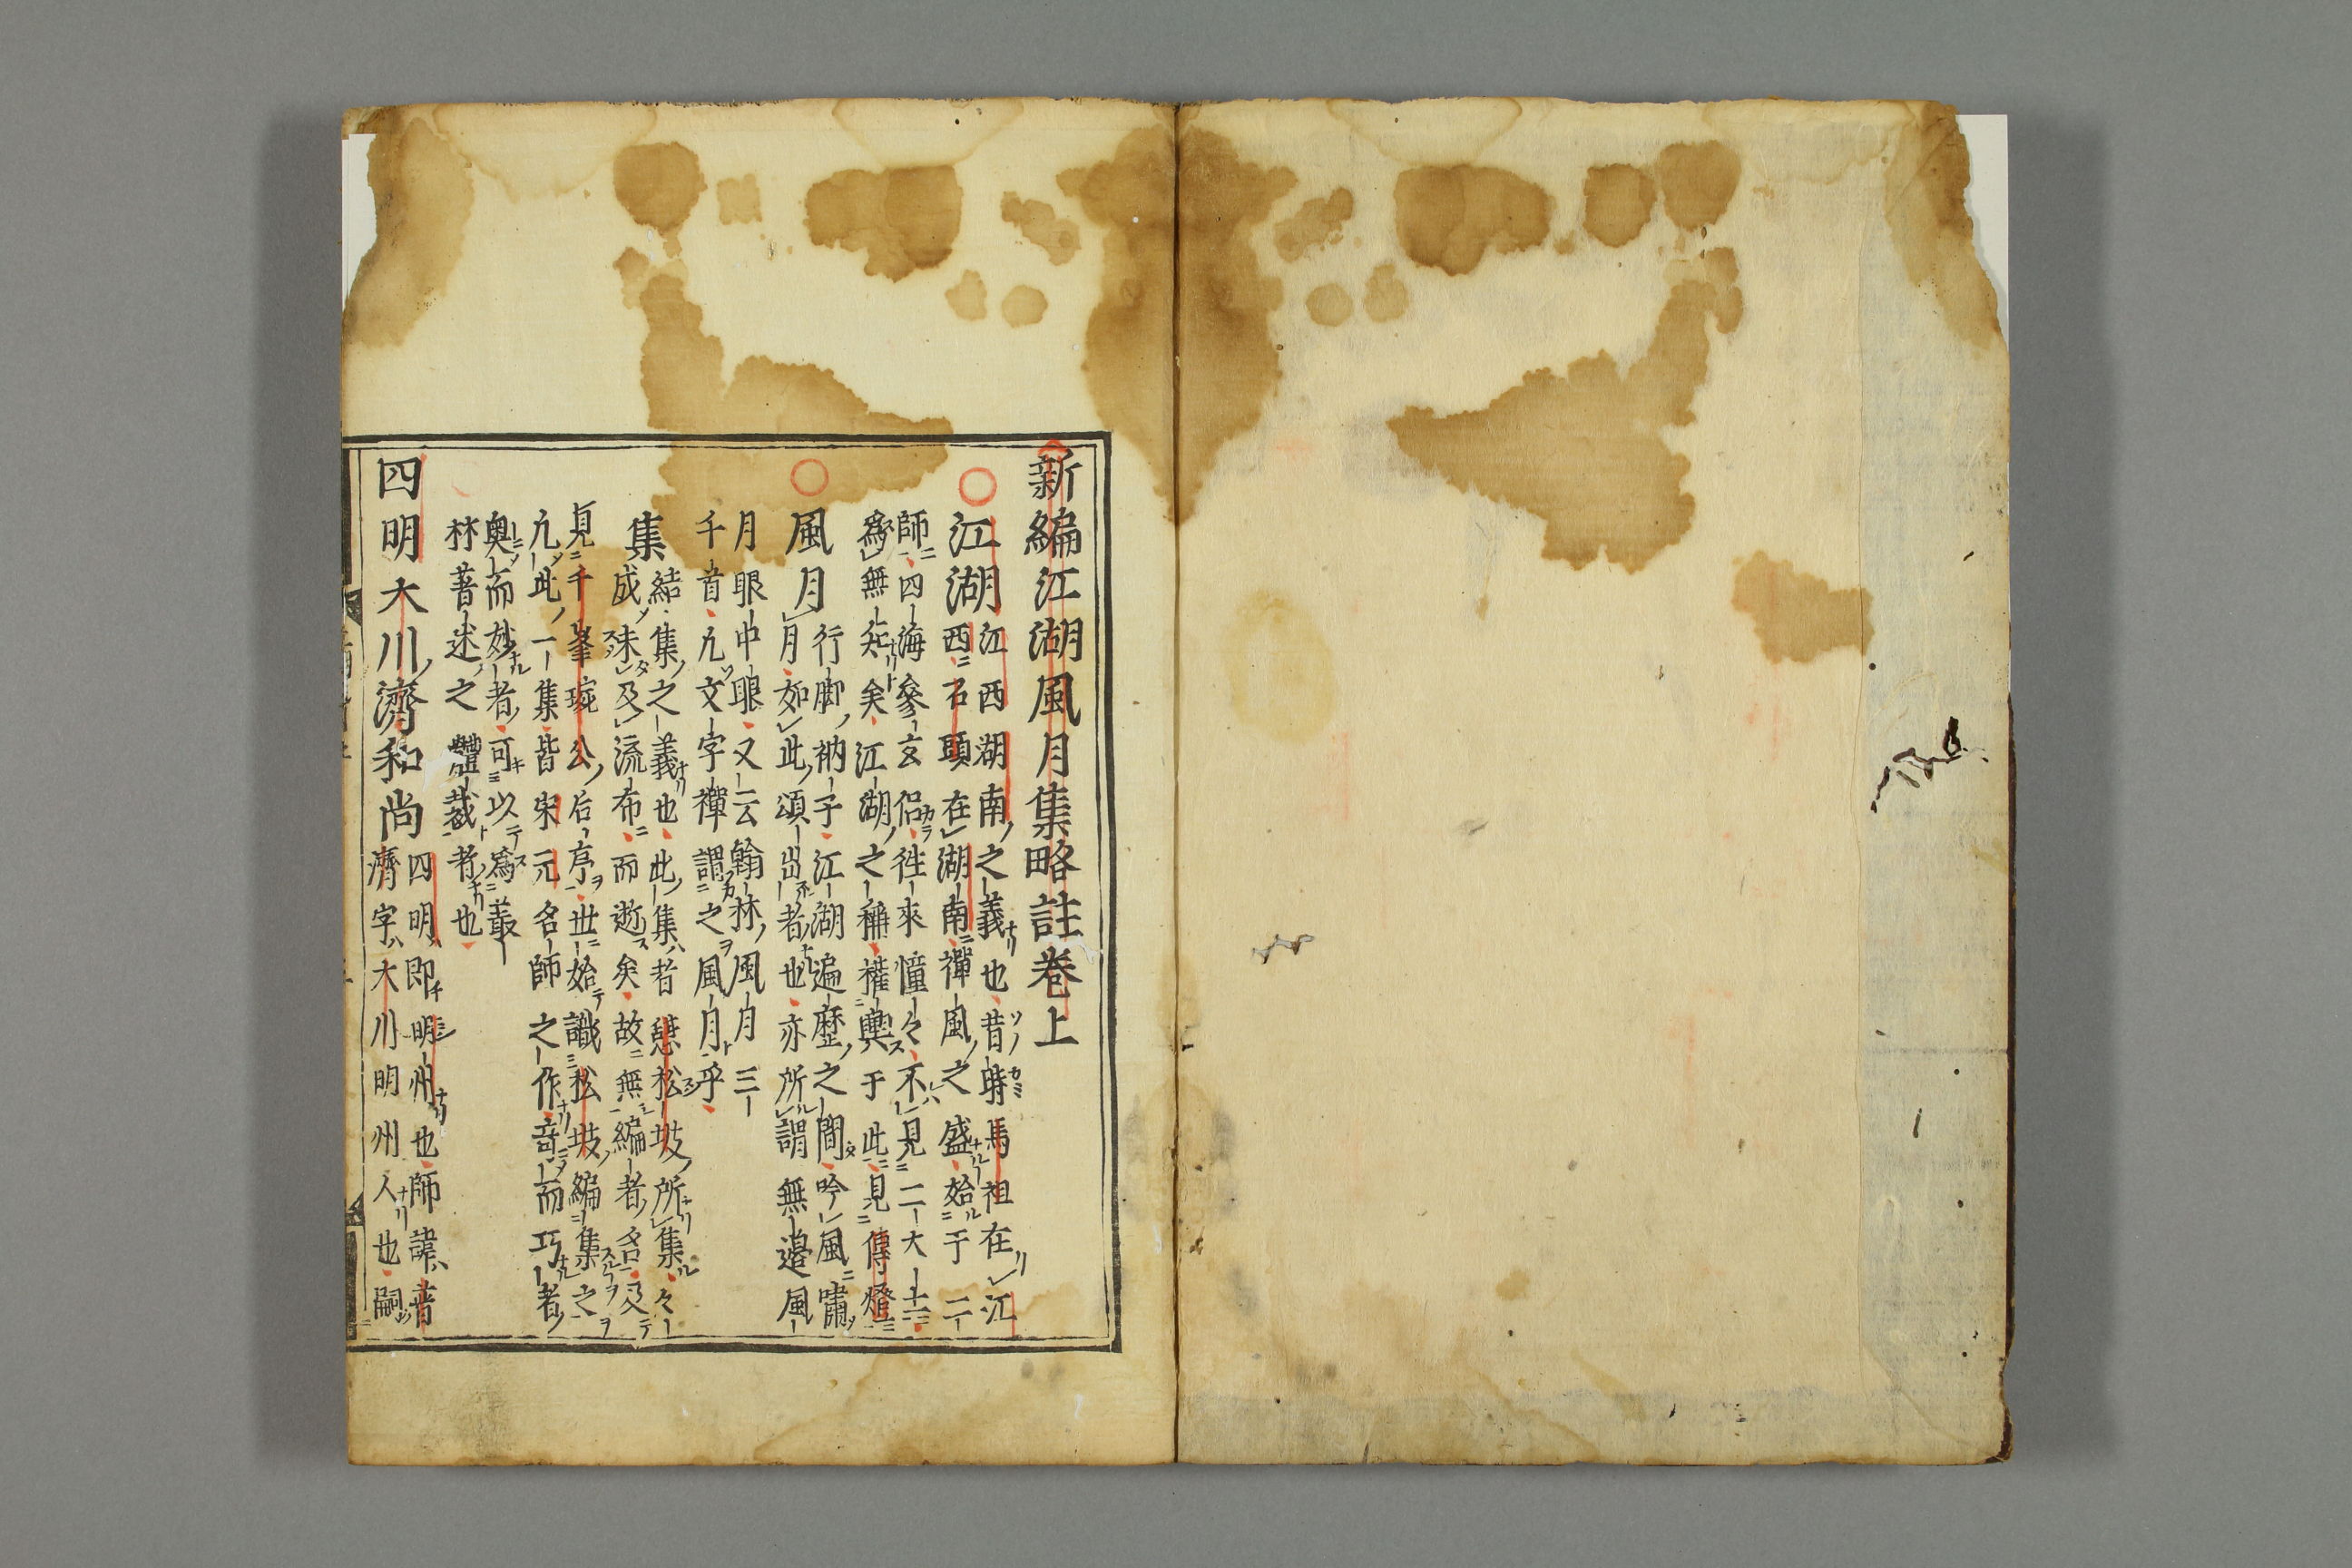 新編江湖風月集略註卷上
江湖
江西湖南之義也昔時馬祖在江
西石頭在湖南禪風之盛始于二
師四海參玄侶徃來憧々不見二大士
爲無知矣江湖之稱權輿于此見傳燈
風月
行脚衲子江湖遍歷之間吟風嘯
月如此頌出者也亦所謂無邊風
月眼中眼又云翰林風月三
千首凢文字禪謂之風月乎
集
結集之義也此集者憩松坡所集々
成未及流布而逝矣故無編者名又
見千峯琬公后序世始識松坡編集之
凢此一集皆宋元名師之作奇而巧者
奧而妙者可以爲叢
林著述之體裁者也
四明大川濟和尚
四明即明州也師諱普
濟字大川明州人也嗣